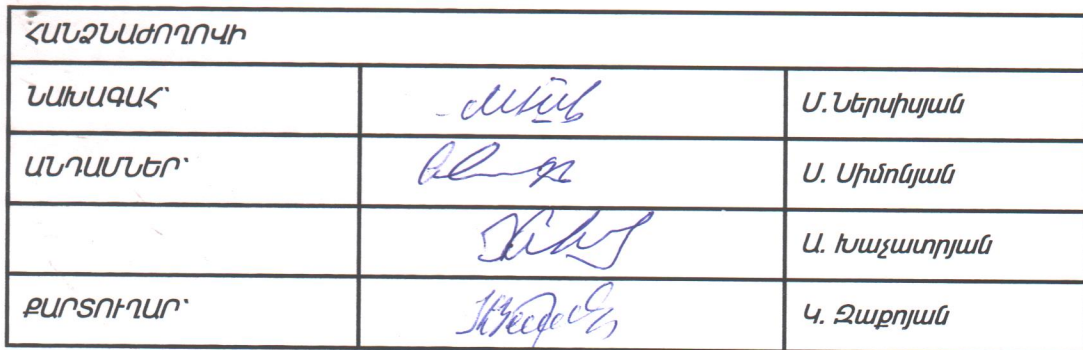 ՀԱՆՁՆԱԺՈՂՈՎԻ
ՆԱԽԱԳԱՀ՝ Մ.Ներսիսյան
ԱՆԴԱՄՆԵՐ՝ Ս. Սիմոնյան
Ա. Խաչատրյան
ՔԱՐՏՈՒՂԱՐ՝ Կ. Զաքոյան